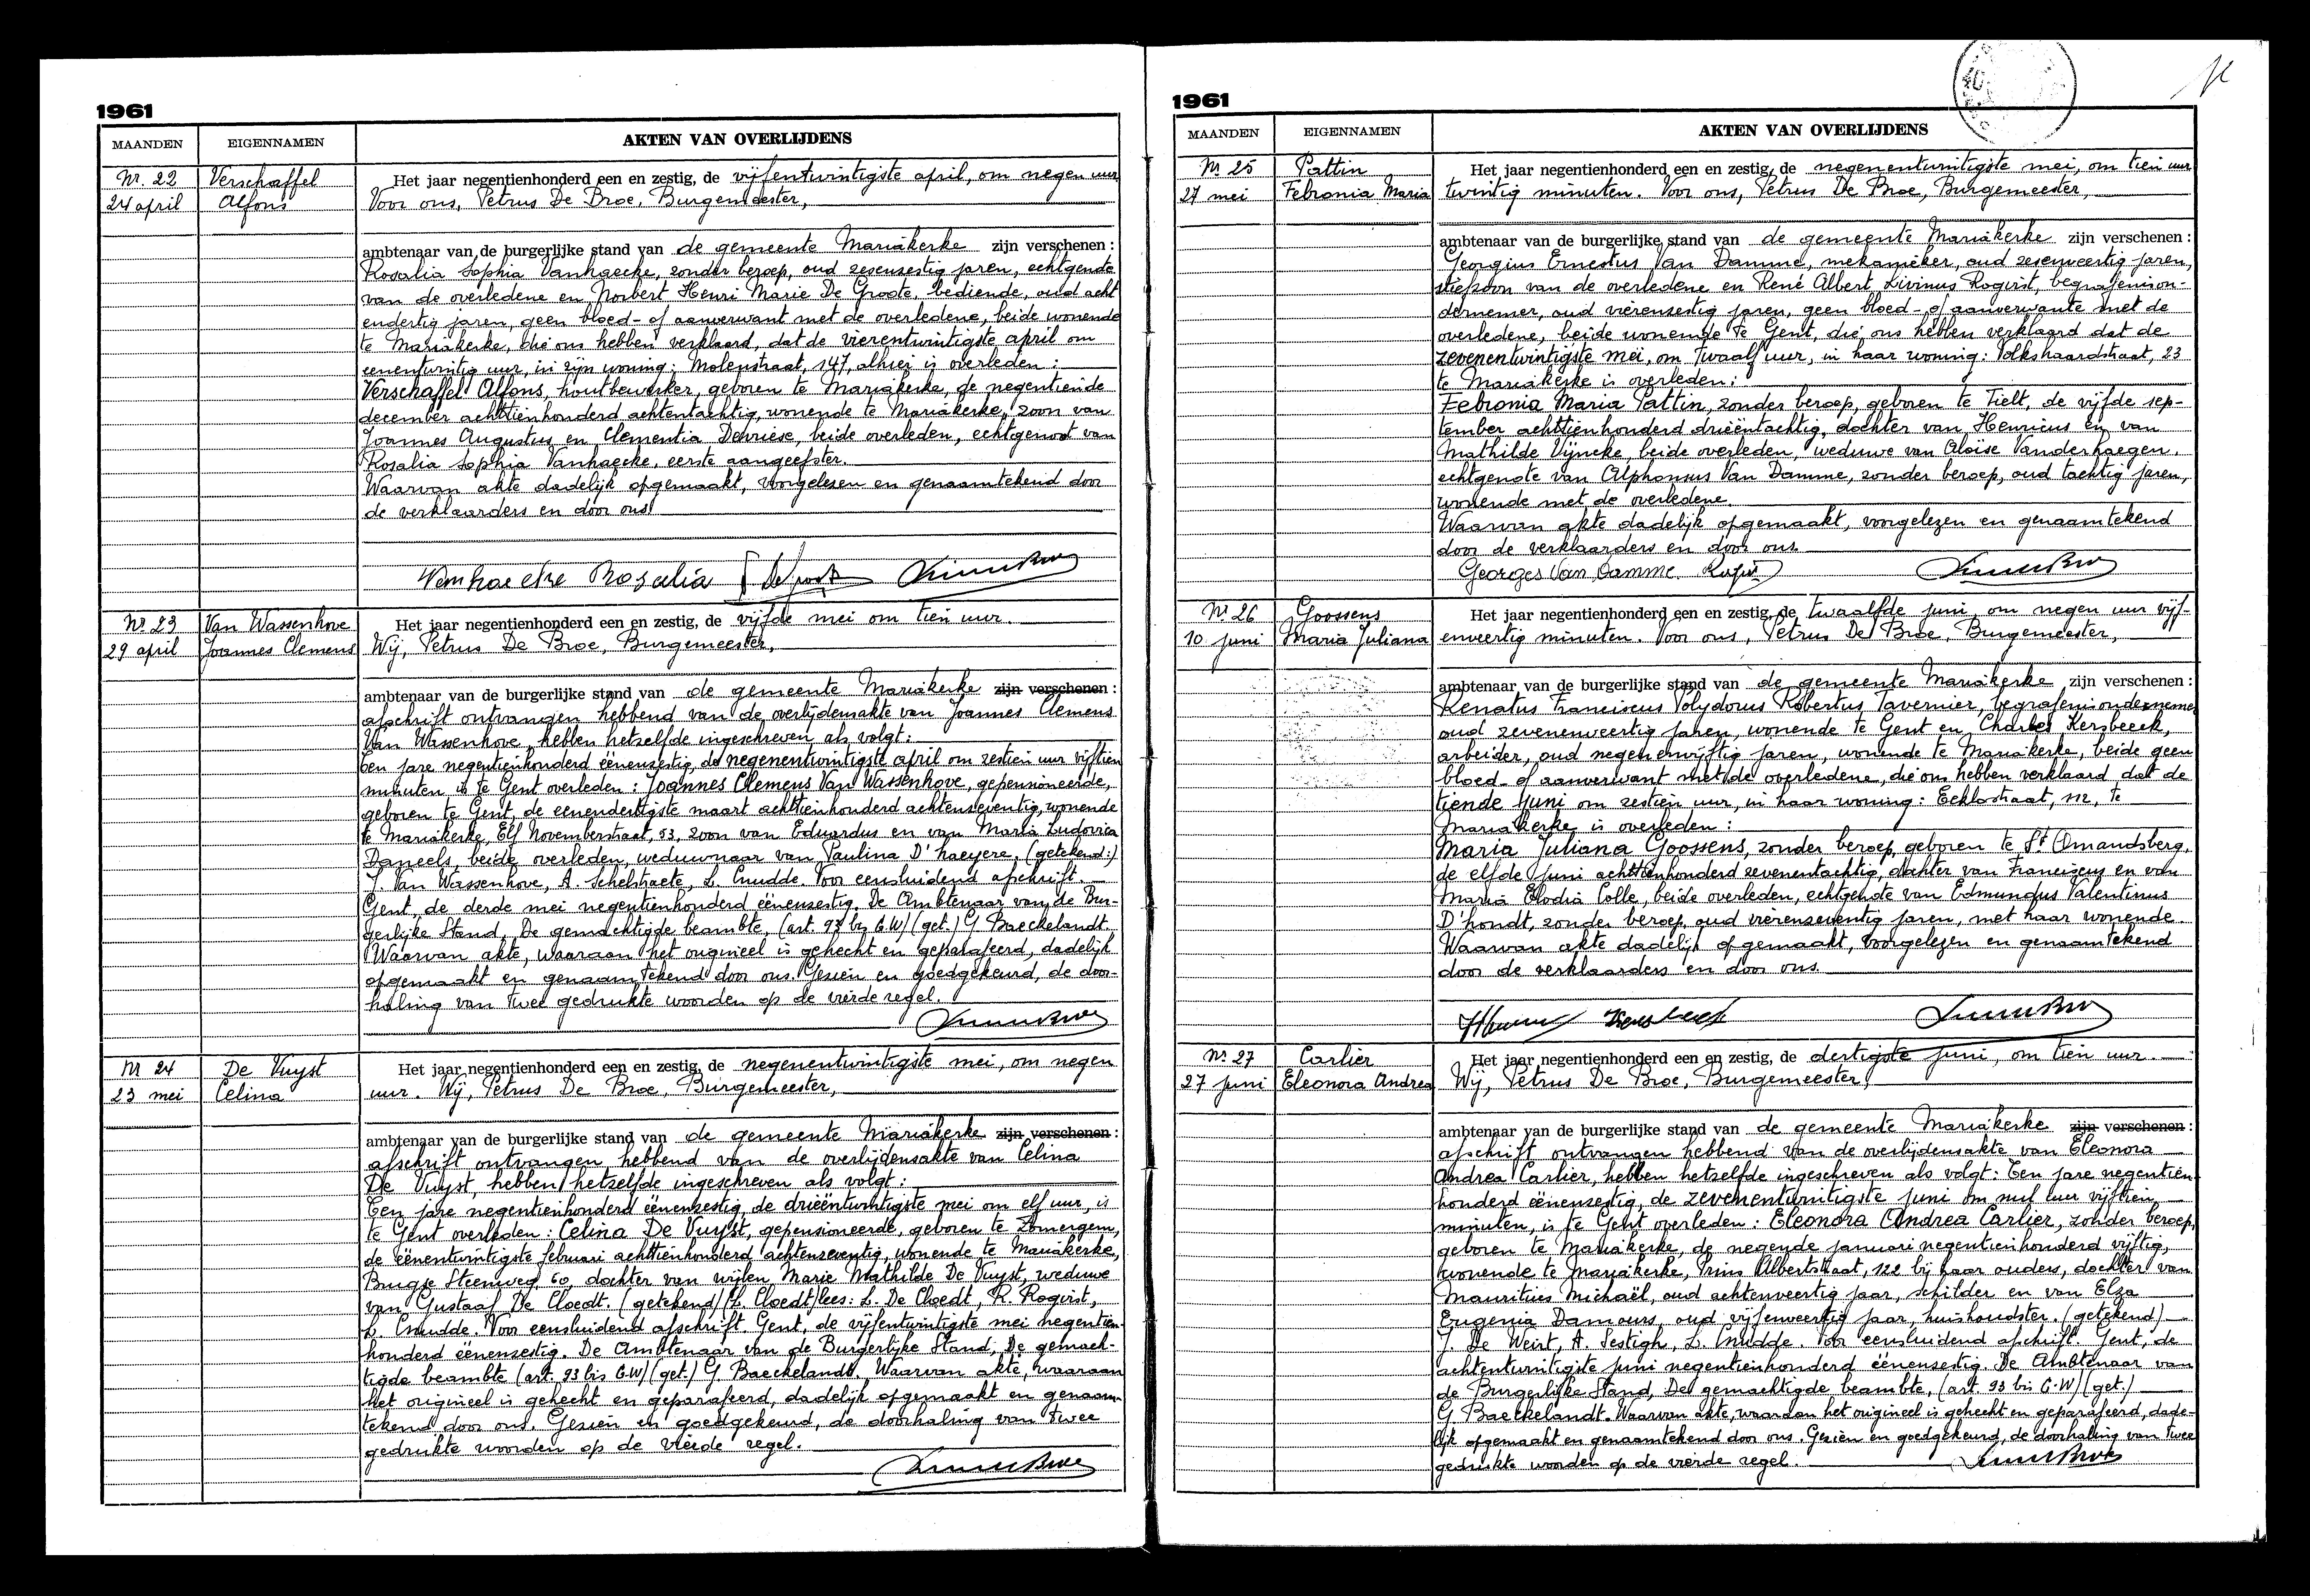 1961
MAANDEN EIGENNAMEN AKTEN VAN OVERLIJDENS
Nr. 22 Verschaffel
24 april Alfons
Het jaar negentienhonderd een en zestig, de vijfentwintigste april, om negen uur
Voor ons, Petrus De Broe, Burgemeester,
ambtenaar van de burgerlijke stand van de gemeente Mariakerke zijn verschenen :
Rosalia Sophia Vanhaecke, zonder beroep, oud zesenzestig jaren, echtgenote
van de overledene en Norbert Henri Marie De Groote, bediende, oud acht
endertig jaren, geen bloed- of aanverwant met de overledene, beide wonende
te Mariakerke, die ons hebben verklaard, dat de vierentwintigste april om
eenentwintig uur, in zijn woning: Molenstraat, 147, alhier is overleden :
Verschaffel Alfons, houtbewerker, geboren te Mariakerke, de negentiende
december achttienhonderd achtentachtig, wonende te Mariakerke, zoon van
Joannes Augustus en Clementia Devriese, beide overleden, echtgenoot van
Rosalia Sophia Vanhaecke, eerste aangeefster.
Waarvan akte dadelijk opgemaakt, voorgelezen en genaamtekend door
de verklaarders en door ons.
Vanhaecke Rosalia
Nr 23 Van Wassenhove
29 april Joannes Clemens
Het jaar negentienhonderd een en zestig, de vijfde mei om tien uur.
Wij, Petrus De Broe, Burgemeester,
ambtenaar van de burgerlijke stand van de gemeente Mariakerke zijn verschenen :
afschrift ontvangen hebbend van de overlijdensakte van Joannes Clemens
Van Wassenhove, hebben hetzelfde ingeschreven als volgt :
Ten jare negentienhonderd éénenzestig, de negenentwintigste april om zestien uur vijftien
minuten is te Gent overleden : Joannes Clemens Van Wassenhove, gepensioneerde,
geboren te Gent, de eenendertigste maart achttienhonderd achtenzeventig, wonende
te Mariakerke, Elf Novemberstraat, 53, zoon van Eduardus en van Maria Ludovica
Daneels, beide overleden, weduwnaar van Paulina D'haeyere. (getekend:)
J. Van Wassenhove, A. Schelstraete, L. Cnudde. Voor eensluidend afschrift.
Gent, de derde mei negentienhonderd éénenzestig. De Ambtenaar van de Bur-
gerlijke Stand, De gemachtigde beambte, (art. 93 bis G.W) (get.) G Baeckelandt.
Waarvan akte, waaraan het origineel is gehecht en geparafeerd, dadelijk
opgemaakt en genaamtekend door ons. Gezien en goedgekeurd, de door-
haling van twee gedrukte woorden op de vierde regel.
Nr 24 De Vuyst
23 mei Celina
Het jaar negentienhonderd een en zestig, de negenentwintigste mei, om negen
uur. Wij, Petrus De Broe, Burgemeester,
ambtenaar van de burgerlijke stand van de gemeente Mariakerke zijn verschenen :
afschrift ontvangen hebbend van de overlijdensakte van Celina
De Vuyst, hebben hetzelfde ingeschreven als volgt :
Ten jare negentienhonderd éénenzestig, de drieëntwintigste mei om elf uur, is
te Gent overleden : Celina De Vuyst, gepensioneerde, geboren te Zomergem,
de éénentwintigste februari achttienhonderd achtenzeventig, wonende te Mariakerke,
Brugse Steenweg, 60, dochter van wijlen Marie Mathilde De Vuyst, weduwe
van Gustaaf De Cloedt. (getekend) (L. Cloedt) lees: L. De Cloedt, R. Rogirst,
L. Cnudde. Voor eensluidend afschrift. Gent, de vijfentwintigste mei negentien-
honderd éénenzestig. De Ambtenaar van de Burgerlijke Stand, De gemach-
tigde beambte (art. 93 bis G.W) (get.) G. Baeckelandt. Waarvan akte, waaraan
het origineel is gehecht en geparafeerd, dadelijk opgemaakt en genaam-
tekend door ons. Gezien en goedgekeurd, de doorhaling van twee
gedrukte woorden op de vierde regel.
1961
MAANDEN EIGENNAMEN AKTEN VAN OVERLIJDENS
Nr 25 Pattin
27 mei Febronia Maria
Het jaar negentienhonderd een en zestig, de negenentwintigste mei, om tien uur
twintig minuten. Voor ons, Petrus De Broe, Burgemeester,
ambtenaar van de burgerlijke stand van de gemeente Mariakerke zijn verschenen :
Georgius Ernestus Van Damme, mekanieker, oud zesenveertig jaren,
stiefzoon van de overledene en René Albert Livinus Rogirst, begrafenison-
dernemer, oud vierenzestig jaren, geen bloed- of aanverwante met de
overledene, beide wonende te Gent, die ons hebben verklaard dat de
zevenentwintigste mei, om twaalf uur, in haar woning : Volkshaardstraat, 23
te Mariakerke is overleden :
Febronia Maria Pattin, zonder beroep, geboren te Tielt, de vijfde sep-
tember achttienhonderd drieëntachtig, dochter van Henricus en van
Mathilde Vijncke, beide overleden, weduwe van Aloïse Vanderhaegen,
echtgenote van Alphonsus Van Damme, zonder beroep, oud tachtig jaren,
wonende met de overledene.
Waarvan akte dadelijk opgemaakt, voorgelezen en genaamtekend
door de verklaarders en door ons.
Georges Van Damme
Nr 26 Goossens
10 juni Maria Juliana
Het jaar negentienhonderd een en zestig, de twaalfde juni, om negen uur vijf-
enveertig minuten. Voor ons, Petrus De Broe, Burgemeester,
ambtenaar van de burgerlijke stand van de gemeente Mariakerke zijn verschenen :
Renatus Franciscus Polydorus Robertus Tavernier, begrafenisondernemer
oud zevenenveertig jaren, wonende te Gent en Charles Kersbeeck,
arbeider, oud negenenvijftig jaren, wonende te Mariakerke, beide geen
bloed- of aanverwant met de overledene, die ons hebben verklaard dat de
tiende juni om zestien uur, in haar woning : Eeklostraat, 112, te
Mariakerke is overleden :
Maria Juliana Goossens, zonder beroep, geboren te St Amandsberg,
de elfde juni achttienhonderd zevenentachtig, dochter van Franciscus en van
Maria Elodia Colle, beide overleden, echtgenote van Edmundus Valentinus
D'hondt, zonder beroep, oud vierenzeventig jaren, met haar wonende.
Waarvan akte dadelijk opgemaakt, voorgelezen en genaamtekend
door de verklaarders en door ons.
Nr. 27 Carlier
27 juni Eleonora Andrea
Het jaar negentienhonderd een en zestig, de dertigste juni, om tien uur.
Wij, Petrus De Broe, Burgemeester,
ambtenaar van de burgerlijke stand van de gemeente Mariakerke zijn verschenen :
afschrift ontvangen hebbend van de overlijdensakte van Eleonora
Andrea Carlier, hebben hetzelfde ingeschreven als volgt : Ten jare negentien-
honderd éénenzestig, de zevenentwintigste juni om nul uur vijftien
minuten, is te Gent overleden : Eleonora Andrea Carlier, zonder beroep,
geboren te Mariakerke, de negende januari negentienhonderd vijftig,
wonende te Mariakerke, Prins Albertstraat, 122 bij haar ouders, dochter van
Mauritius Michaël, oud achtenveertig jaar, schilder en van Elza
Eugenia Damours, oud vijfenveertig jaar, huishoudster. (getekend)
J. De Weirt, A. Sestigh, L. Cnudde. Voor eensluidend afschrift. Gent, de
achtentwintigste juni negentienhonderd éénenzestig. De Ambtenaar van
de Burgerlijke Stand, De gemachtigde beambte, (art. 93 bis G.W) (get.)
G Baeckelandt. Waarvan akte, waaraan het origineel is gehecht en geparafeerd, dade-
lijk opgemaakt en genaamtekend door ons. Gezien en goedgekeurd, de doorhaling van twee
gedrukte woorden op de vierde regel.